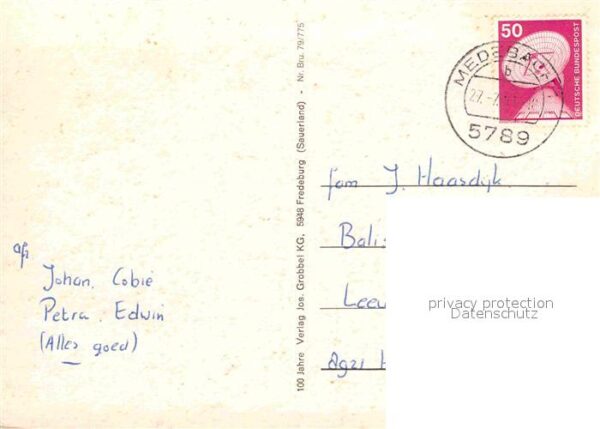 50
DEUTSCHE BUNDESPOST
MEDEBACH
b
5789
100 Jahre Verlag Jos. Grobbel KG, 5948 Fredeburg (Sauerland) - Nr. Bru. 79/775
fam J. Haasdyk
Bali
Leeu
privacy protection
Datenschutz
afz
Johan, Cobie
Petra Edwin
(Alles goed)